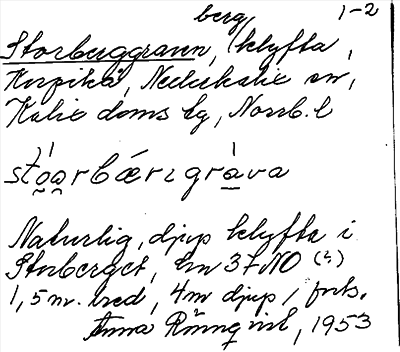 berg, 1-2
Storberggraven, klyfta,
Korpikå, Nederkalix sn,
Kalix doms lg, Norrb. l
stoarbærzgrava
Naturlig, djup klyfta i
Storberget, km 37 NO (?)
1,5 m. bred, 4 m djup, forts.
Anna Rönnqvist, 1953